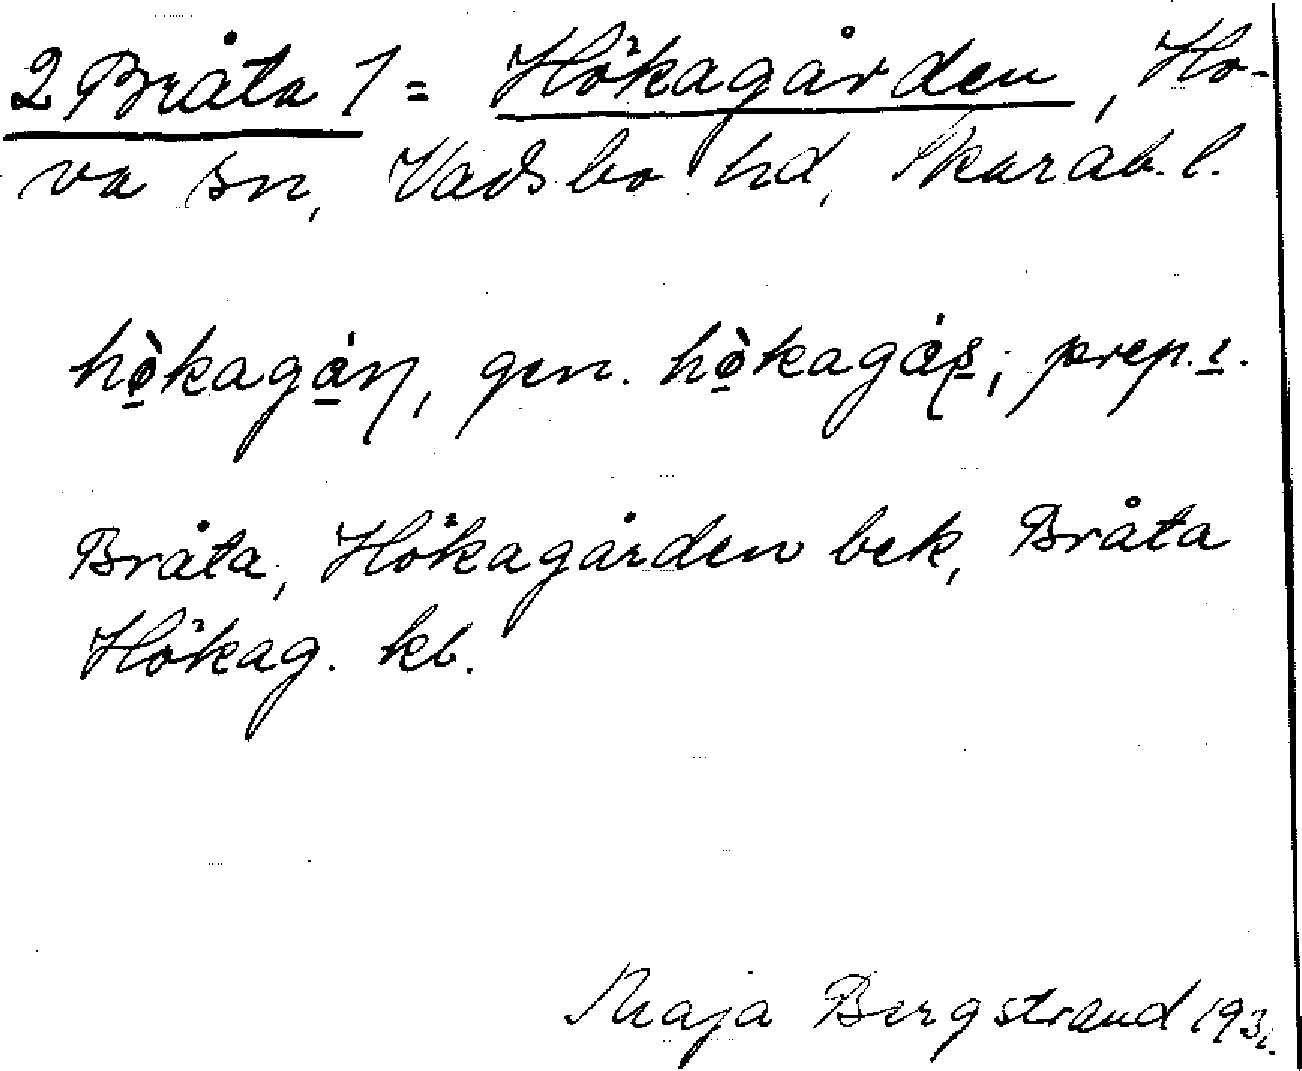 2 Bråta 1 = Hökagården, Ho-
va sn, Vadsbo hd, Skarab. l.
hö̀kagán, gen. hö̀kagás; prep. i.
Bråta, Hökagården bek, Bråta
Hökag. kb.
Maja Bergstrand